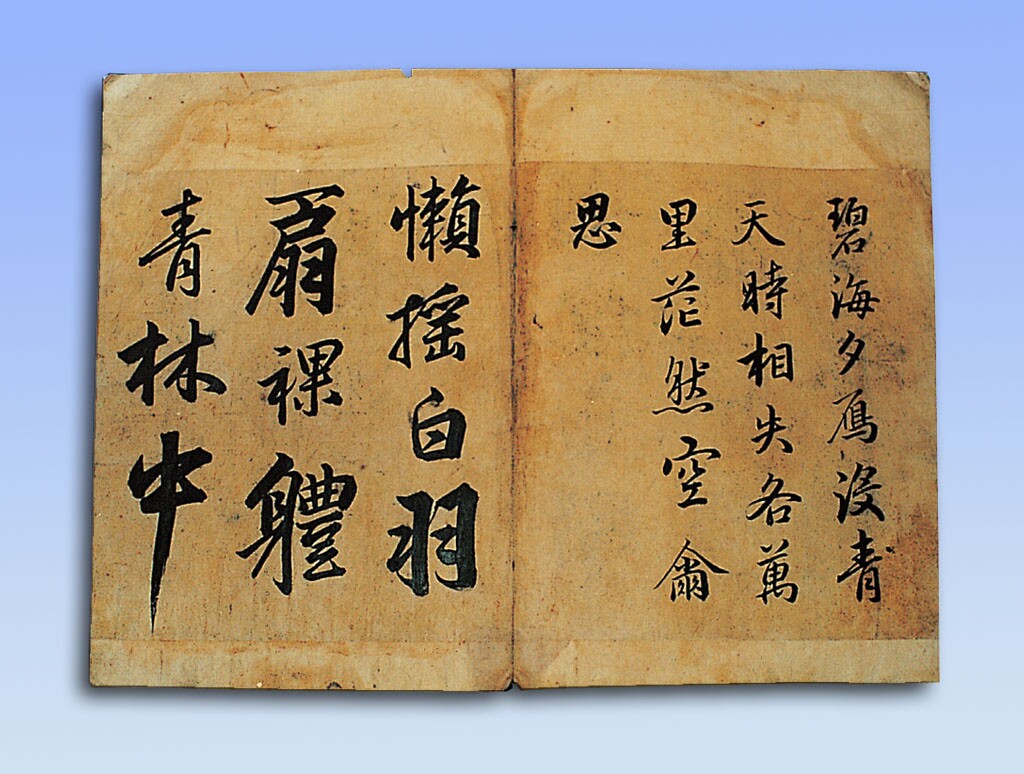 碧海夕鴈没青
天時相失各萬
里茫然空爾
思
懶摇白羽
扇裸體
青林中